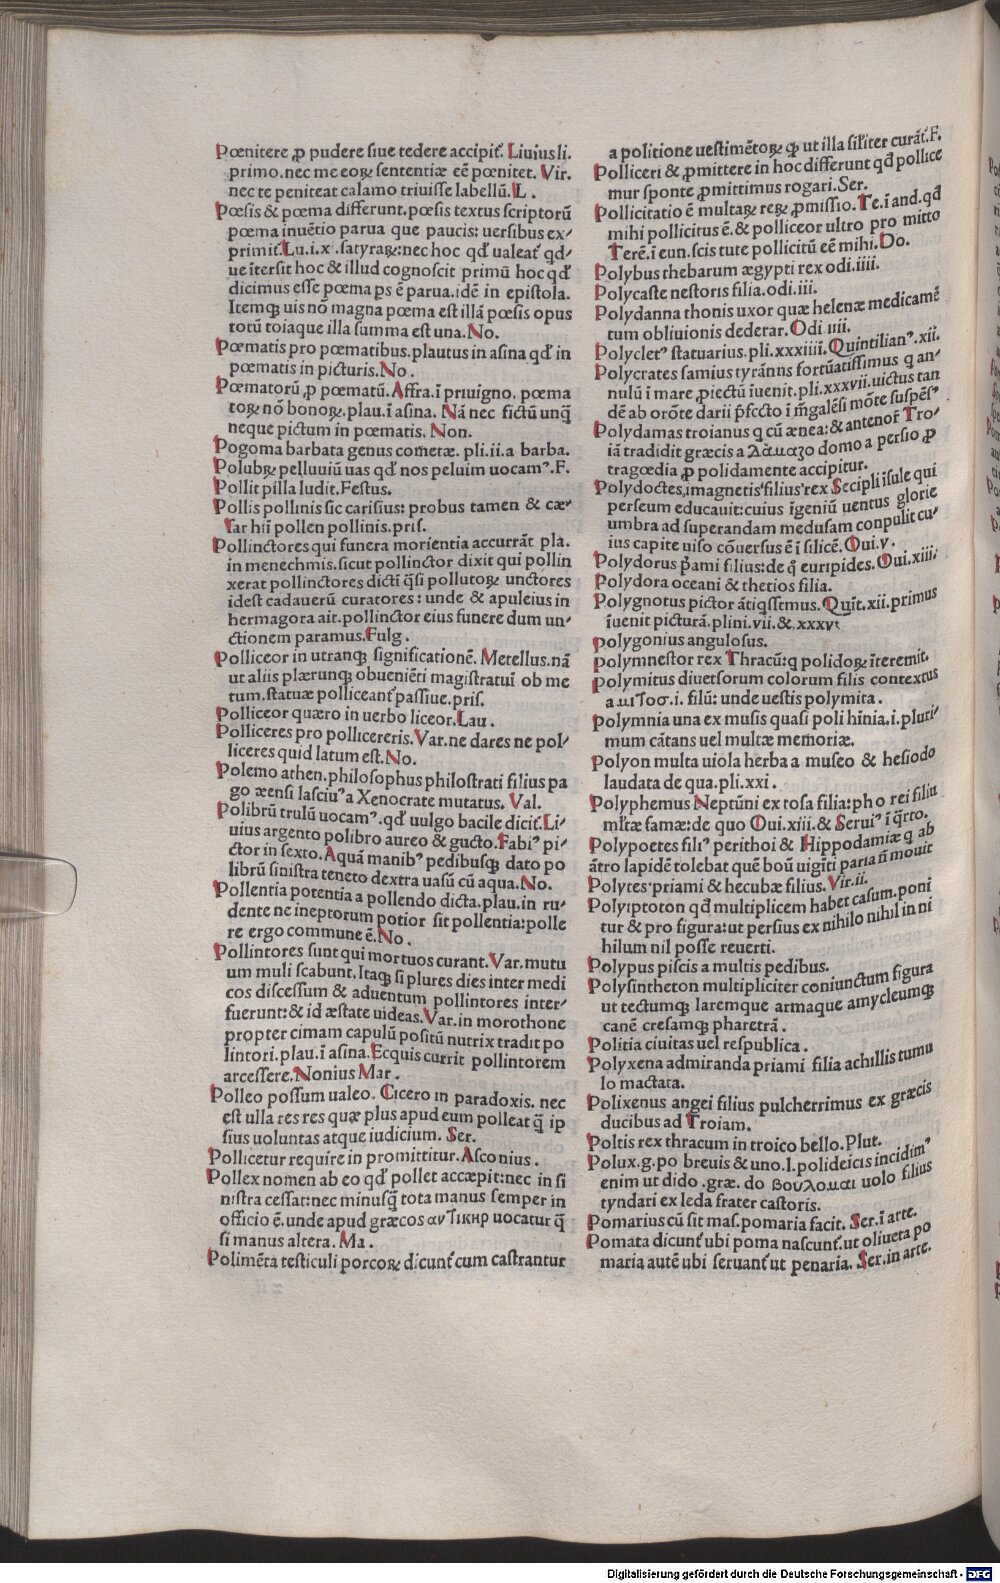 Pœnitere ꝓ pudere siue tedere accipit᷑. Liuius li.
primo.nec me eoꝝ sententiæ eē pœnitet. Vir.
nec te peniteat calamo triuisse labellū.L.
Pœsis & pœma differunt.pœsis textus scriptorū
pœma inuētio parua que paucis: uersibus ex⸗
primit᷑.Lu.i.x.satyraꝝ:nec hoc qđ ualeat᷑ qđ⸗
ue itersit hoc & illud cognoscit primū hoc qđ
dicimus esse pœma ps ē parua.idē in epistola.
Itemq; uis nō magna pœma est illā pœsis opus
totū toiaque illa summa est una.No.
Pœmatis pro pœmatibus.plautus in asina qđ in
pœmatis in picturis.No.
Pœmatorū ꝓ pœmatū.Affra.ī priuigno.pœma
toꝝ nō bonoꝝ.plau.ī asina. Nā nec fictū unq̄
neque pictum in pœmatis. Non.
Pogoma barbata genus cometæ. pli.ii.a barba.
Polubꝝ pelluuiū uas qđ nos peluim uocamꝰ.F.
Pollit pilla ludit.Festus.
Pollis pollinis sic carisius: probus tamen & cæ⸗
sar hīī pollen pollinis.pris.
Pollinctores qui funera morientia accurrāt pla.
in menechmis.sicut pollinctor dixit qui pollin
xerat pollinctores dicti q̄si pollutoꝝ unctores
idest cadauerū curatores: unde & apuleius in
hermagora ait.pollinctor eius funere dum un⸗
ctionem paramus.Fulg.
Polliceor in utranq; significationē. Metellus.nā
ut aliis plærunq; obueniēti magistratui ob me
tum.statuæ pollicean᷑t passiue.pris.
Polliceor quæro in uerbo liceor.Lau.
Polliceres pro pollicereris.Var.ne dares ne pol⸗
liceres quid latum est.No.
Polemo athen.philosophus philostrati filius pa
go œensi lasciuꝰ a Xenocrate mutatus. Val.
Polibrū trulū uocamꝰ.qđ uulgo bacile dicit᷑.Li⸗
uius argento polibro aureo & gucto.Fabiꝰ pi⸗
ctor in sexto.Aquā manibꝰ pedibusq; dato po
librū sinistra teneto dextra uasū cū aqua.No.
Pollentia potentia a pollendo dicta.plau.in ru⸗
dente ne ineptorum potior sit pollentia:polle
re ergo commune ē.No.
Pollintores sunt qui mortuos curant.Var.mutu
um muli scabunt.Itaq; si plures dies inter medi
cos discessum & aduentum pollintores inter⸗
fuerunt:& id æstate uideas.Var.in morothone
propter cimam capulū positū nutrix tradit po
lintori.plau.ī asina.Ecquis currit pollintorem
arcessere.Nonius Mar.
Polleo possum ualeo. Cicero in paradoxis. nec
est ulla res res quæ plus apud eum polleat q̄ ip
sius uoluntas atque iudicium. Ser.
Pollicetur require in promittitur.Asconius.
Pollex nomen ab eo qđ pollet accæpit:nec in si
nistra cessat:nec minusq̄ tota manus semper in
officio ē.unde apud græcos αντικηρ uocatur q̄
si manus altera. Ma.
Polimēta testiculi porcoꝝ dicun᷑t cum castrantur
a politione uestimētoꝝ ꝙ ut illa sil̄iter curāt᷑.F.
Polliceri & ꝓmittere in hoc differunt qđ pollice
mur sponte ꝓmittimus rogari.Ser.
Pollicitatio ē multaꝝ reꝝ ꝓmissio.Te.ī and.qđ
mihi pollicitus ē.& polliceor ultro pro mitto
Terē.ī eun.scis tute pollicitū eē mihi.Do.
Polybus thebarum ægypti rex odi.iiii.
Polycaste nestoris filia.odi.iii.
Polydanna thonis uxor quæ helenæ medicamē
tum obliuionis dederar. Odi iiii.
Polycletꝰ statuarius.pli.xxxiiii. Quintilianꝰ.xii.
Polycrates samius tyrānns fortūatissimus q an⸗
nulū ī mare ꝓiectū īuenit.pli.xxxvii.uictus tan
dē ab orōte darii p̄fecto ī m̄galēsi mōte suspēsꝰ
Polydamas troianus q cū ænea:& antenor᷑ Tro⸗
iā tradidit græcis a λαμαζο domo a persio ꝓ
tragœdia ꝓ polidamente accipitur.
Polydoctes,imagnetisꝰfiliusꝰrex Secipli īsule qui
perseum educauit:cuius īgeniū uentus glorie
umbra ad superandam medusam conpulit cu⸗
ius capite uiso cōuersus ē ī silicē.Oui.v.
Polydorus p̄ami filius:de q̊ euripides.Oui.xiii.
Polydora oceani & thetios filia.
Polygnotus pictor ātiqssimus.Quīt.xii.primus
īuenit picturā.plini.vii.& xxxv
Polygonius angulosus.
Polymnestor rex Thracū:q polidoꝝ īteremit.
Polymitus diuersorum colorum filis contextus
a μιτοσ.i. filū: unde uestis polymita.
Polymnia una ex musis quasi poli hinia.i.pluri⸗
mum cātans uel multæ memoriæ.
Polyon multa uiola herba a museo & hesiodo
laudata de qua.pli.xxi.
Polyphemus Neptūni ex tosa filia:pho rei filiu
ml̄tæ famæ:de quo Oui.xiii.& Seruiꝰ ī q̄rto.
Polypoetes filiꝰ perithoi & Hippodamiæ q ab
ātro lapidē tolebat quē boū uigīti paria n̄ mouit
Polytes priami & hecubæ filius.Vir.ii.
Polyiptoton qđ multiplicem habet casum.poni
tur & pro figura:ut persius ex nihilo nihil in ni
hilum nil posse reuerti.
Polypus piscis a multis pedibus.
Polysintheton multipliciter coniunctum figura
ut tectumq; laremque armaque amycleumq;
canē cresamq; pharetrā.
Politia ciuitas uel respublica.
Polyxena admiranda priami filia achillis tumu
lo mactata.
Polixenus angei filius pulcherrimus ex græcis
ducibus ad Troiam.
Poltis rex thracum in troico bello.Plut.
Polux.g.po breuis & uno.l.polideicis incidimꝰ
enim ut dido .græ. do βουλομαι uolo filius
tyndari ex leda frater castoris.
Pomarius cū sit mas.pomaria facit. Ser.ī arte.
Pomata dicun᷑t ubi poma nascun᷑t.ut oliueta po
maria autē ubi seruan᷑t ut penaria. Ser.in arte.
Digitalisierung gefördert durch die Deutsche Forschungsgemeinschaft - DFG